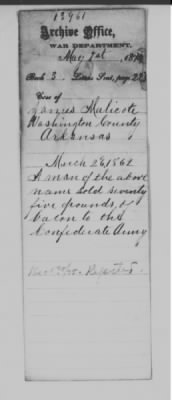 12961
Archive Office,
WAR DEPARTMENT,
May 1st, 187
Book 3. Letters Sent, page 2
Case of
James Mulicote
Washington County
Arkansas
March 26, 1862
A man of the above
name sold seventy
five pounds, of
bacon to the
Confederate Army